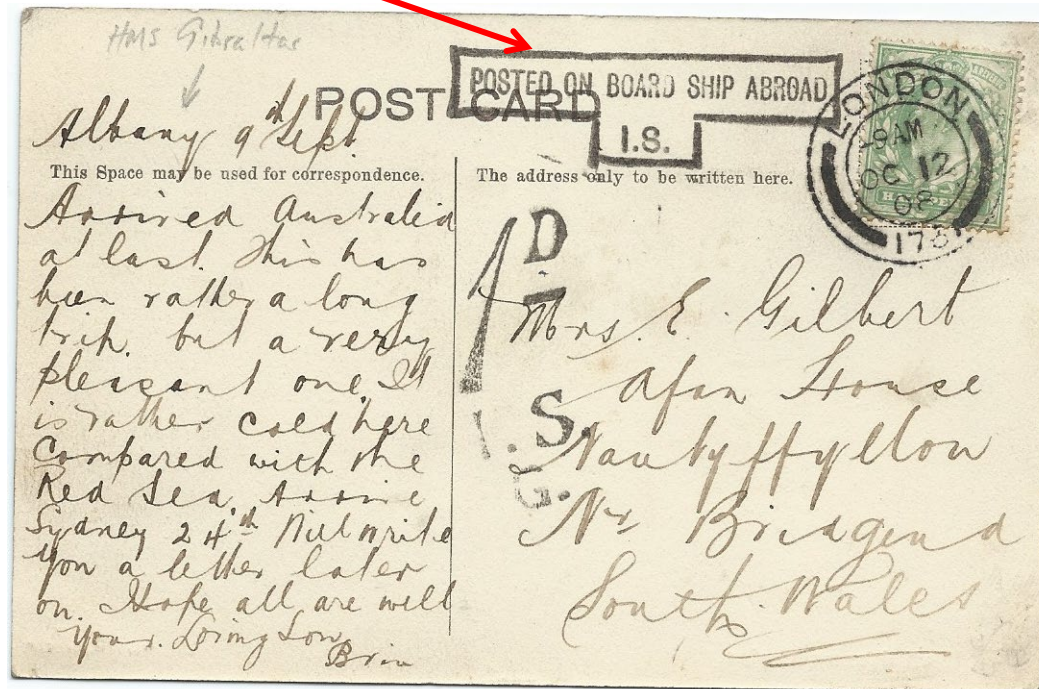 HMS Gibraltar
POSTED ON BOARD SHIP ABROAD
I.S.
POST CARD
LONDON
9 AM
OC 12
08
HALF
Albany 9th Sept
This Space may be used for correspondence.
The address only to be written here.
Arrived Australia
at last. This has
been rather a long
trip, but a very
pleasant one. It
is rather cold here
Compared with the
Red Sea. Arrive
Sydney 24th Will write
you a letter later
on. Hope all are well
Your Loving Son
1D
S.
Mrs. E. Gilbert
Afan House
Nantyffyllon
Nr Bridgend
South Wales